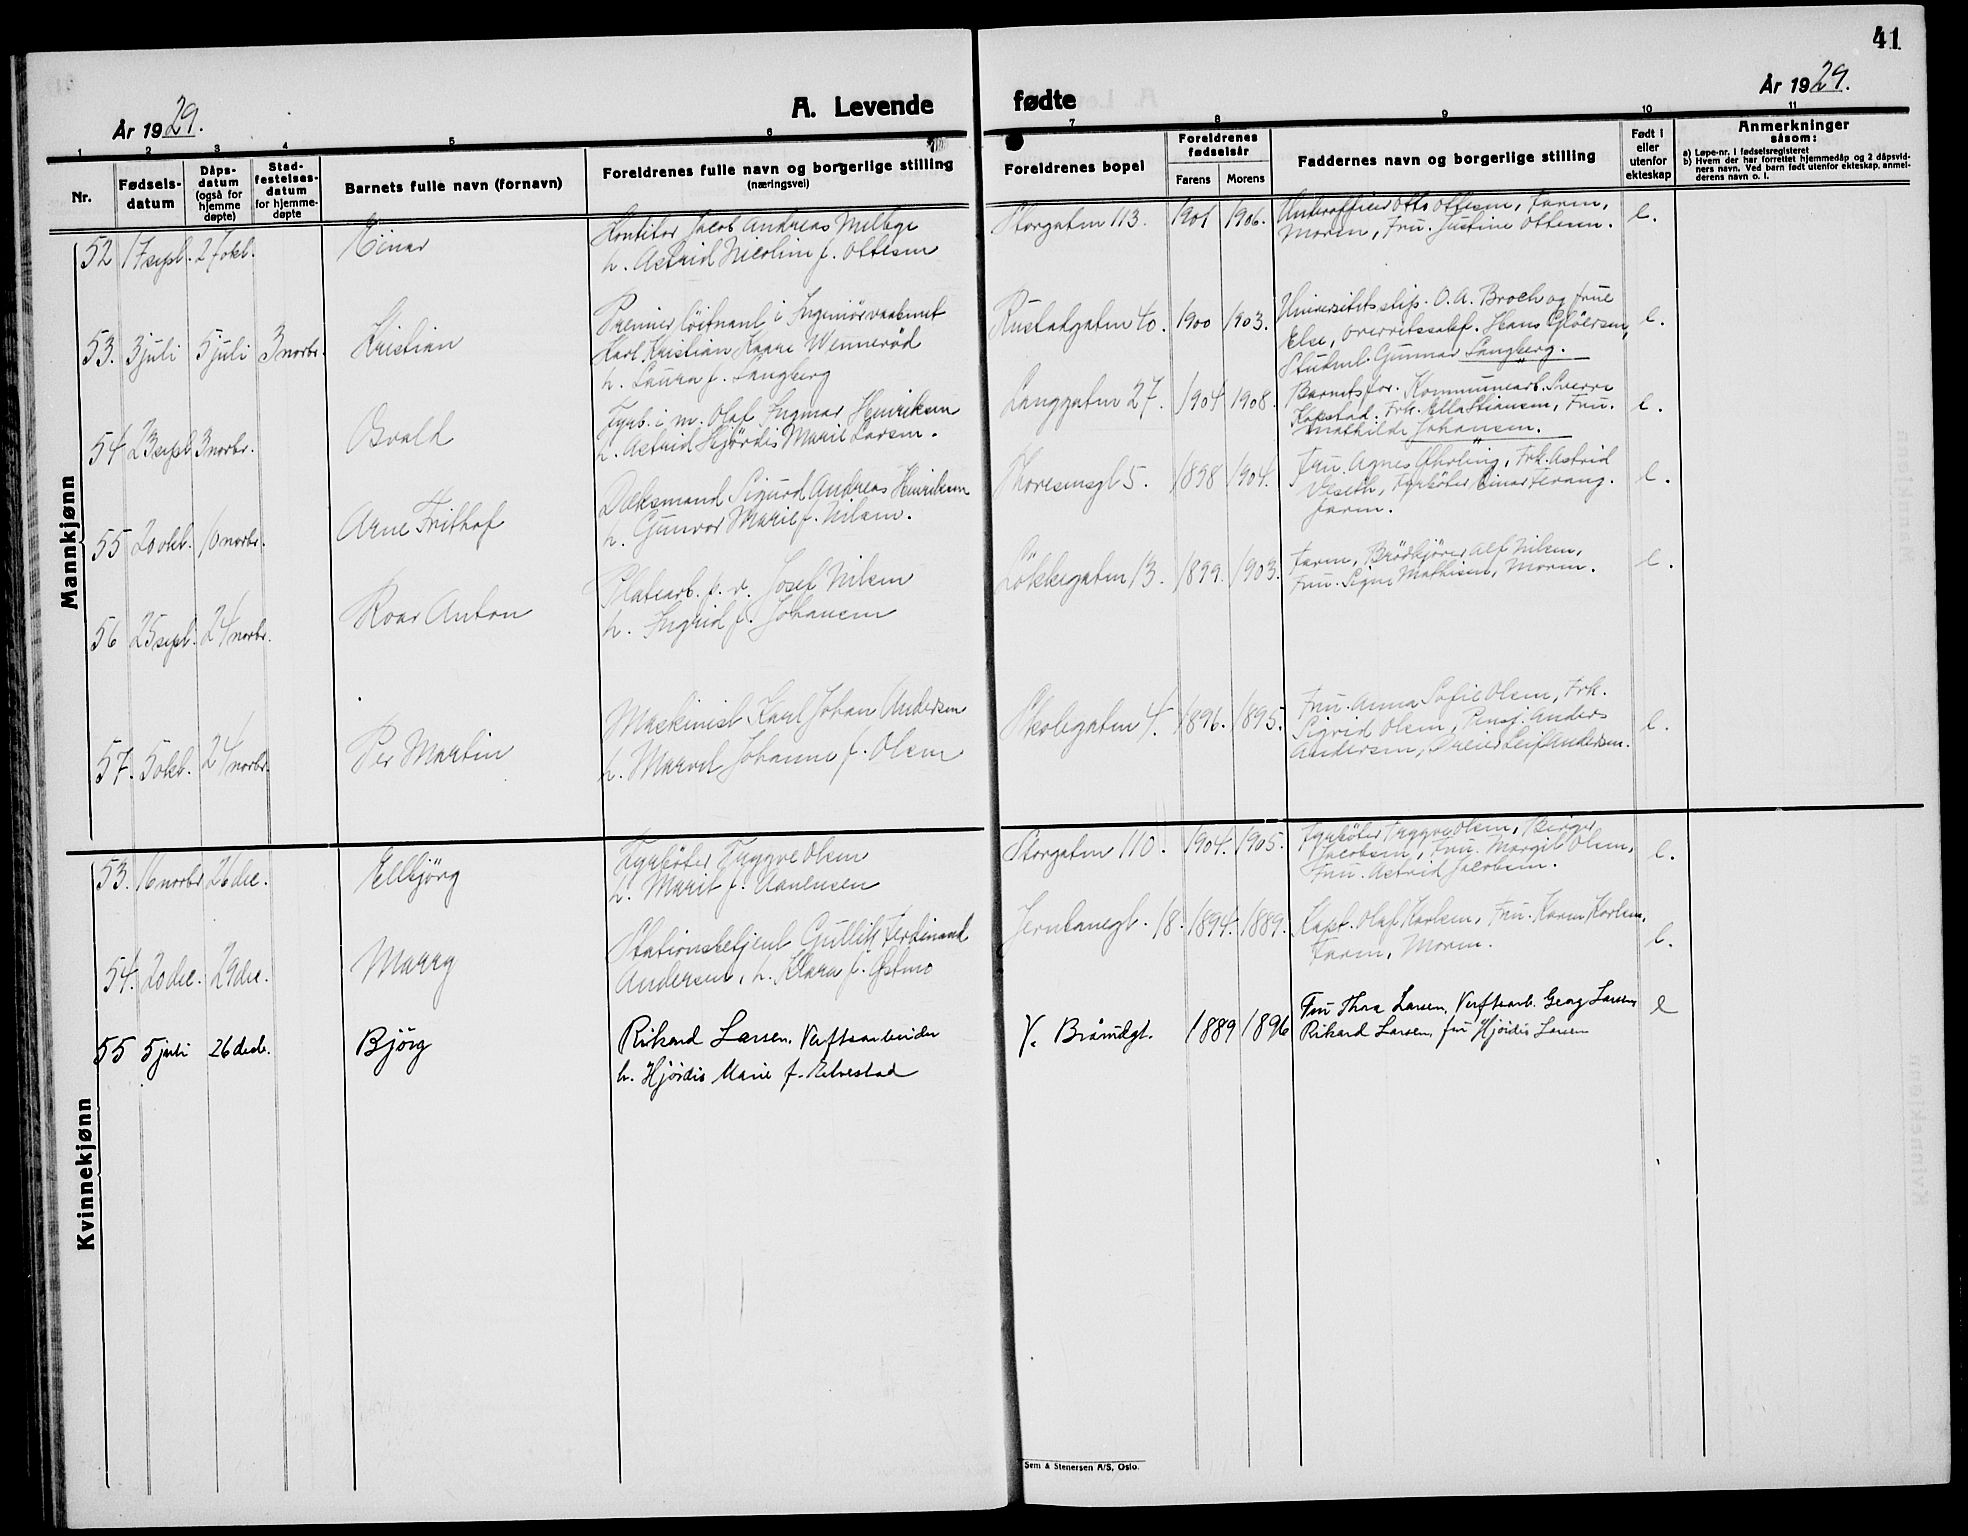 41
År 1929.
A. Levende
fødte
År 1929.
1 2 3 4 5 6 7 8 9 10 11
Nr.
Fødsels-
datum
Dåps-
datum
(også for
hjemme
døpte)
Stad-
festelses-
datum
for hjemme-
døpte
Barnets fulle navn (fornavn)
Foreldrenes fulle navn og borgerlige stilling
(næringsvei)
Foreldrenes bopel
Foreldrenes
fødselsår
Farens Morens
Faddernes navn og borgerlige stilling
Født i
eller
utenfor
ekteskap
Anmerkninger
såsom:
a) Løpe-nr. i fødselsregisteret
b) Hvem der har forrettet hjemmedåp og 2 dåpsvid-
ners navn. Ved barn født utenfor ekteskap, anmel-
derens navn o. l.
Mannkjønn
52 17 sept. 27 okt. Einar
Konditor Jacob Andreas Melbye
h. Astrid Nicoline f. Ottesen
Storgaten 113. 1901 1906.
Underofficer Otto Ottesen, Faren,
Moren, Fru. Justine Ottesen. e.
53. 3 juli 5 juli 3 novbr. Kristian
Premierløitnant i Ingeniørvaabnet
Karl Kristian Kaare Wennerød
h. Laura f. Langberg
Rustadgaten 40. 1900 1903.
Universitetsstip. O. A. Broch og frue
Else, overretssakf. Hans Gløersen,
Studnt. Gunnar Langberg. e.
54 23 sept. 3 novbr. Osvald
Fyrb. i m. Olaf Ingmar Henriksen
h. Astrid Hjördis Marie Larsen.
Langgaten 27. 1904 1908.
Barnets for. Kommunearb. Sverre
Kopstad. Frk. Ella Stiansen, Fru.
Mathilde Johansen. e.
55 20 okt. 10 novbr. Arne Frithof
Dæksmand Sigurd Andreas Henriksen
h. Gunvor Marie f. Nilsen.
Thoresensgt 5. 1898 1904.
Fru. Agnes Øhrling, Frk. Astrid
Veseth, Fyrbøter Einar Ferang.
Faren. e.
56 25 sept. 24 novbr. Roar Anton
Platearb. p. v. Josef Nilsen
h. Ingrid f. Johansen
Løkkegaten 13. 1899. 1903.
Faren, Brødkjører Alf Nilsen,
Fru. Signe Mathisen, Moren. e.
57. 5 okt. 24 novbr. Per Martin
Maskinist Karl Johan Andersen
h. Marvel Johanne f. Olsen
Skolegaten 4. 1896. 1895.
Fru. Anna Sofie Olsen, Frk.
Sigrid Olsen, Pensj. Anders
Andersen, Dreier Leif Andersen. e.
Kvinnekjønn
53. 16 novbr. 26 dec. Ellbjörg
Fyrbøter Tryggve Olsen
h. Marit f. Aanensen
Storgaten 110. 1904. 1905.
Fyrbøter Tryggve Olsen, Birger
Jacobsen, Fru. Margit Olsen,
Fru. Astrid Jacobsen. e.
54. 20 dec. 29 dec. Marry
Stationsbetjent Gullik Ferdinand
Andersen, h. Klara f. Østmo
Jernbanegt. 18. 1894. 1889.
Kapt. Olaf Karlsen, Fru. Karen Karlsen.
Faren, Moren. e.
55 5 juli 26 decb. Bjørg
Rikard Larsen. Verftsarbeider
h. Hjørdis Marie f. Elvestad
V. Brårudgt. 1889 1896
Fru Thora Larsen, Verftsarb. Georg Larsen,
Rikard Larsen, fru Hjørdis Larsen e
Sem & Stenersen A/S, Oslo.